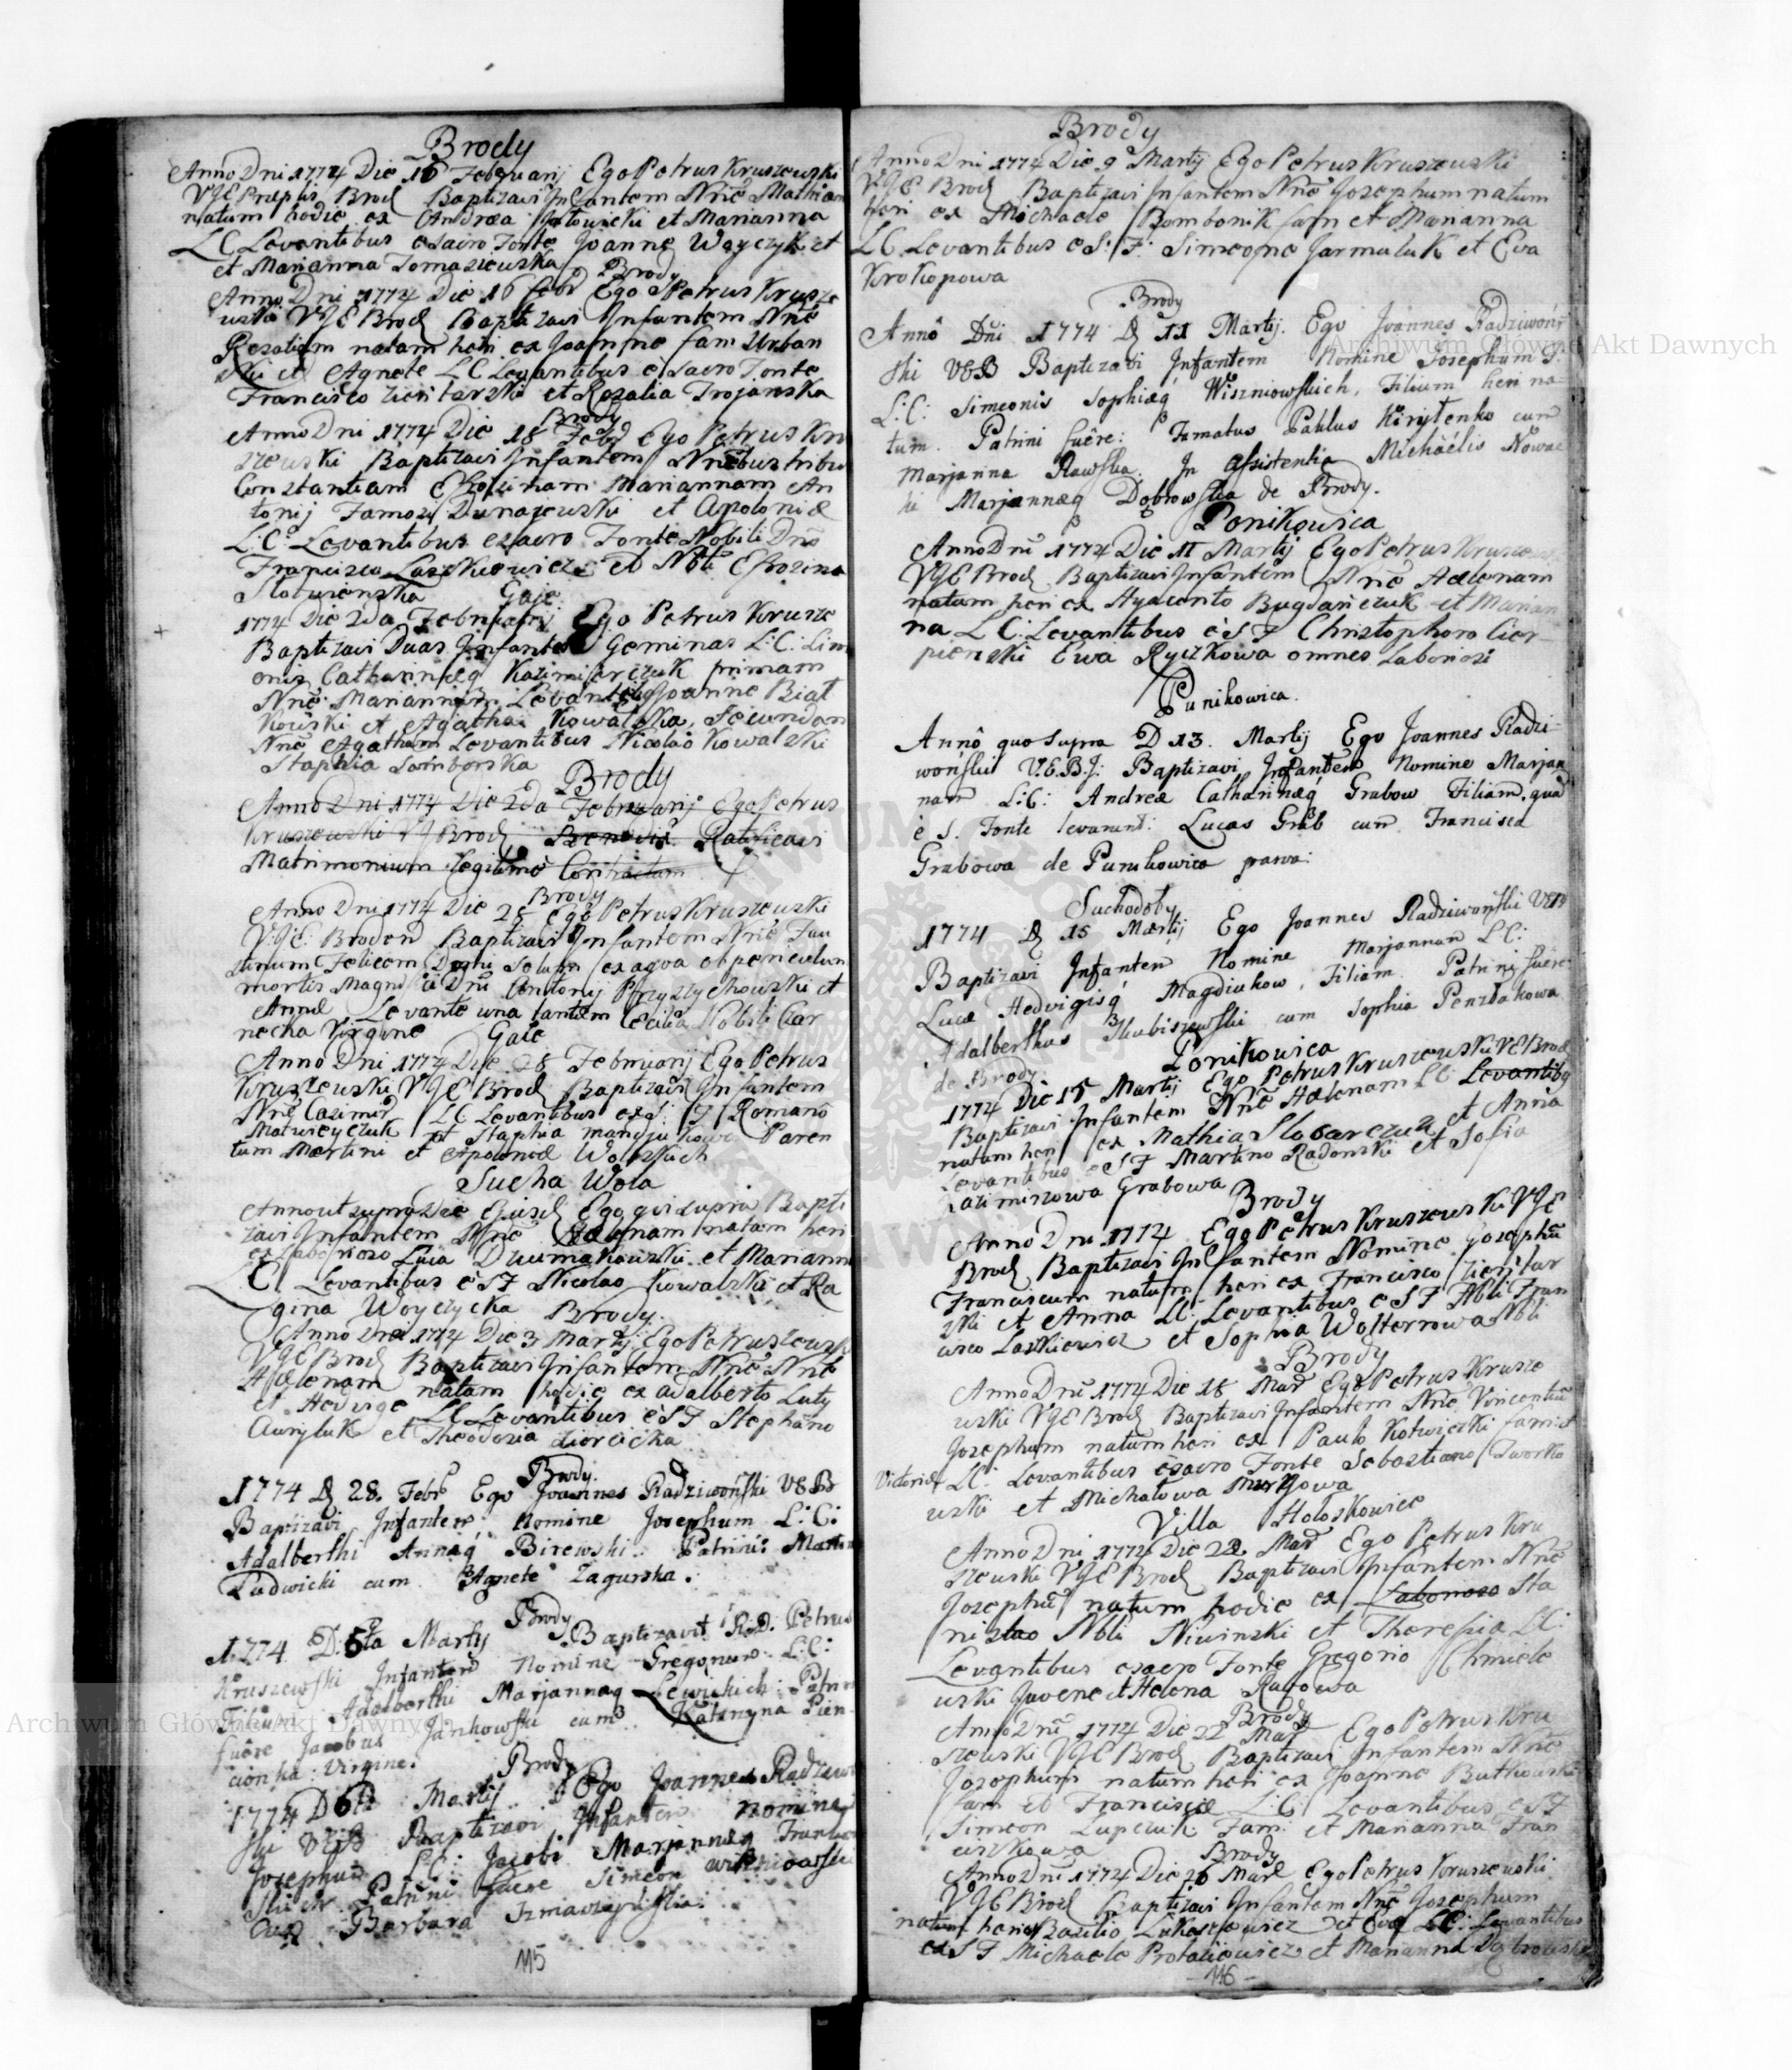 Brody
Anno Dni 1774 Die 16 Februarij Ego Petrus Kruszewski
VGE Brod Baptizavi Infantem Nne Mathiam
natum hodie ex Andrea et Marianna
LC Levantibus e sacro Fonte Joanne Woyczyk et
et Marianna Tomaszewska
Brody
Anno Dni 1774 Die 16 Feb Ego Petrus Krusze
wski VGE Brod Baptizavi Infantem Nne
Rozaliam natam heri ex Joanne fam Urban
ski et Agnete LC Levantibus e sacro Fonte
Francisco et Rozalia Trojanska
Brody
Anno Dni 1774 Die 18 Feb Ego Petrus Kru
szewski Baptizavi Infantem Nnebus tribus
Constantiam Efrozinam Mariannam An
tonij Famosi Dunajewski et Apoloniæ
L:C: Levantibus e sacro Fonte Nobili Dno
Francisco Laszkiewicz et Nbli Efrozina
Gaje
1774 Die 2da Februarij Ego Petrus Krusze
Baptizavi Duas Infantes Geminas L:C: Sim
onis Catharinæq Kazimiarczuk primam
Nne Mariannam Levantibq Joanne Biał
kowski et Agatha Kowalska, Secundam
Nne Agatham Levantibus Nicolao Kowalski
Staphia Samborska
Brody
Anno Dni 1774 Die 2da Februarij Ego Petrus
Kruszewski VG Brod Ratificavi
Matrimonium Legitime Contractum
Brody
Anno Dni 1774 Die 28 Ego Petrus Kruszewski
V:G:E: Broden Baptizavi Infantem Nne Fau
stinum Felicem ex aqua ob periculum
mortis Magnifici Dni Antonij Przyszychowski et
Annæ Levante una tantem Cecilia Nobili Czar
necka Virgine
Gaie
Anno Dni 1774 Die 28 Februarij Ego Petrus
Kruszewski VGE Brod Baptizavi Infantem
Nne Casimir LC Levantibus ex S: F Romano
Matwieyczuk et Staphia Paren
tum Martini et Apoloniæ Wolskich
Sucha Wola
Anno ut supra Die Ejusd Ego qui supra Bapti
zavi Infantem Nne natam heri
ex Laborioso Luca et Marianna
LC Levantibus e S F Nicolao Kowalski et Re
gina Woyczycka
Brody
Anno Dni 1774 Die 3 Martij Ego Petrus
VGE Brod Baptizavi Infantem Nne
Hælenam natam hodie ex Adalberto Luty
et Hedvige LC Levantibus e S F Stephano
Awryluk et Theodozia
Brody.
1774 D 28. Febr Ego Joannes Radziwoński VEB
Baptizavi Infantem Nomine Josephum L:C:
Adalberthi Annæq Birewski. Patrini: Martin
Ludwicki cum Agnete Zagurska.
Brody
1774 D. 5ta Martij Baptizavit R.D. Petrus
Kruszewski Infantem Nomine Gregorium L:C:
Filium Adalberthi Marjannæq Lewickich: Patrini
fuêre Jacobus Jankowski cum Katarzyna Pien
cionka Virgine.
Brody
1774 D 6ta Martij Ego Joannes Radziwon
ski VEB Baptizavi Infantem nomine
Josephum LC: Jacobi Marjannæq
Patrini fuere Simeon
cum Barbara
115
Brody
Anno Dni 1774 Die 9 Martij Ego Petrus Kruszewski
VGE Brod Baptizavi Infantem Nne Josephum natum
heri ex Michaele Bombonik fam et Marianna
LC Levantibus e S: F: Simeone Jarmuluk et Eva
Krokopowa
Brody
Annô Dni 1774 D 11 Martij. Ego Joannes Radziwoń
ski VEB Baptizavi Infantem Nomine Josephum
L:C: Simeonis Sophiæq Wiszniowskich, Filium heri na=
tum. Patrini fuêre: Famatus Pahlus Kirylenko cum
Marjanna Rawska. In assistentia Michaëlis Nowac
ki Marjannæq Dobrowska de Brody.
Ponikowica
Anno Dni 1774 Die 11 Martij Ego Petrus Kruszews
VGE Brod Baptizavi Infantem Nne Hælenam
natam heri ex Hyacinto Bugdanczuk et Marian
na LC: Levantibus e S F Christophoro Cier
pienski Ewa Ryczkowa omnes Laboriosi
Punikowica.
Annô quo supra D 13. Martij Ego Joannes Radzi-
wonski V.E.B.: Baptizavi Infantem Nomine Marjan
nam L:C: Andreæ Catharinæq Grabow Filiam, quam
è S. Fonte levarunt: Lucas Grab cum Francisca
Grabowa de Punikowica parva:
Suchodoby
1774 D 15 Martij Ego Joannes Radziwoński VEB
Baptizavi Infantem Nomine Marjannam LC:
Lucæ Hedvigisq Magdiukow, Filiam Patrini fuêre
Adalberthus Skubiszewski cum Sophia
de Brody.
Ponikowica
1774 Die 15 Martij Ego Petrus Kruszewski VE Brod
Baptizavi Infantem Nne Hælenam LC Levantibq
natam heri ex Mathia et Anna
Levantibus e S F Martino Radonski et Sofia
Kazimirzowa Grabowa
Brody
Anno Dni 1774 Ego Petrus Kruszewski VGE
Brod Baptizavi Infantem Nomine Josephu
Franciscum natum heri ex Francisco
ski et Anna LC. Levantibus e S F Nbli Fran
cisco Laskiewicz et Sophia Wolterrowa Nbli
Brody
Anno Dni 1774 Die 18 Mar Ego Petrus Krusze
wski VGE Brod Baptizavi Infantem Nne Vincentiu
Josephum natum heri ex Paulo Kotwicki fam: et
Victoria LC: Levantibus e sacro Fonte Sebastiano Tworko
wski et Michałowa
Villa Hołoskowice
Anno Dni 1774 Die 22 Mar Ego Petrus Kru
szewski VGE Brod Baptizavi Infantem Nne
Josephu natum hodie ex Laborioso Sta
nislao Nbli Niwinski et Theresia LC:
Levantibus e sacro Fonte Gregorio Chmiele
wski Juvene et Helena
Brody
Anno Dni 1774 Die 22 Mar Ego Petrus Kru
szewski VGE Brod Baptizavi Infantem Nne
Josephum natum heri ex Joanne Butkowski
fam et Franciscæ L:C: Levantibus e S F
Simeon Lupczuk Fam: et Marianna Fran
ciszkowa
Brody
Anno Dni 1774 Die 26 Mar Ego Petrus Kruszewski
VGE Brod Baptizavi Infantem Nne Josephum
natum heri ex Bazilio Lukasiewicz et Eva LC: Levantibus
ex S F Michaele et Marianna Dąbrowska
116
Archiwum Główne Akt Dawnych
Archiwum Główne Akt Dawnych